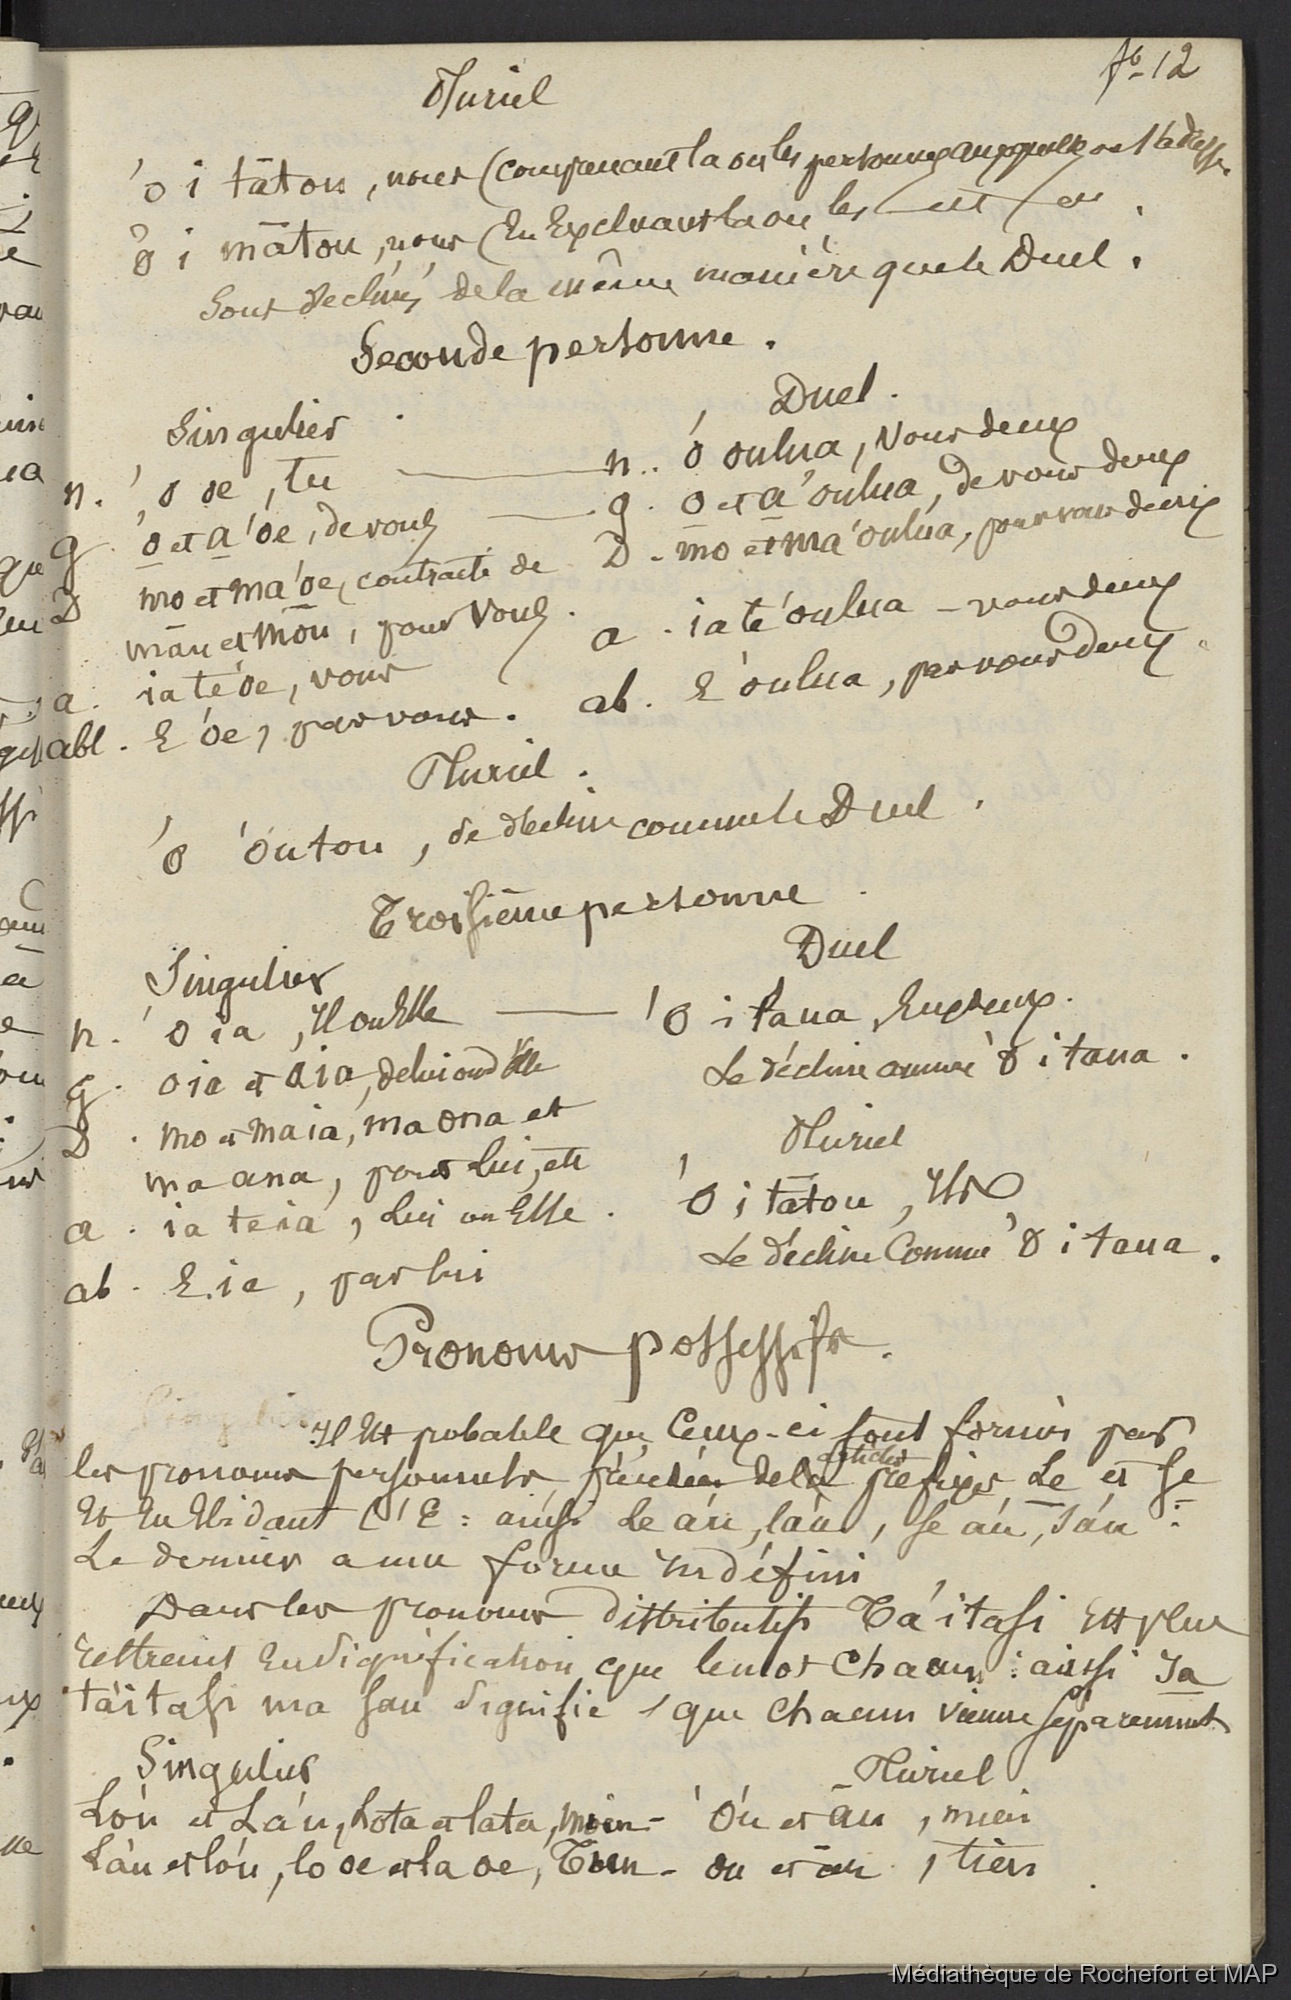 fo 12
Pluriel
'o i tātou, nous (comprenant la ou les personnes auxquelles on s'adresse.
'o i mātou, nous (En Excluant la ou les
Sont declinés de la même manière que le Duel.
Seconde personne.
Singulier. Duel.
n. 'o oe, tu — n. 'o oulua, Vous deux
g. o et a 'oe, de vous — g. o et a 'oulua, de vous deux
D mo et ma 'oe, contracté de D. mo et ma 'oulua, pour vous deux
māu et mōu, pour Vous.
a. ia té 'oe, vous a. ia té 'oulua - vous deux
abl. E 'oe, par vous. ab. E 'oulua, par vous deux.
Pluriel.
'o 'outou, se decline comme le Duel.
Troisième personne.
Singulier Duel
n. 'o ia, Il ou Elle — 'o i laua, Eux deux.
g. o ia et a ia, de lui ou d'Elle Se décline comme 'o i taua.
D. mo et ma ia, ma ona et
ma ana, pour Lui, etc Pluriel
a. ia te ia, Lui ou Elle. 'o i tātou, Ils
ab. E. ia, par lui Se décline Comme 'o i taua.
Pronoms possessifs.
Il Est probable que Ceux-ci sont formés par
les pronoms personnels, précédés de la articles prefixes Le et Se
Et En Elidant l'E: ainsi Le áu, láu, Se áu, Sáu:
Le dernier a une forme indéfini
Dans les pronoms distributifs Ta'itasi Est plus
restreint En signification que le mot Chacun: aussi Ia
ta'itasi ma sau signifie, que chacun vienne séparement
Singulier Pluriel
Lo'u et La'u, Lota et lata, Mien - 'O'u et āu, miens
La'u et lo'u, lo oe et la oe, Tien - ou et āu, tiens
Médiathèque de Rochefort et MAP